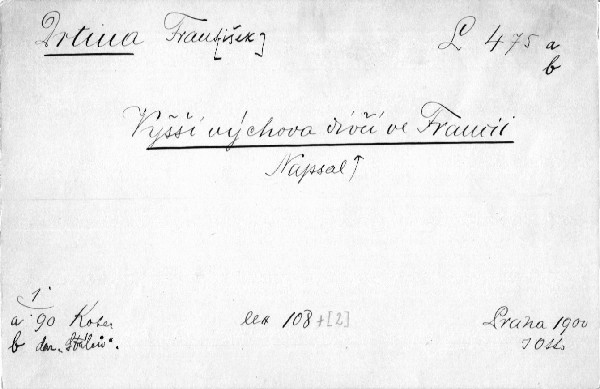 Drtina Frant[išek]
L 475 a
b
Vyšší výchova dívčí ve Francii
Napsal ↑
1
a 90 Kober
b dar „
108 + [2]
Praha 1900
J Otto